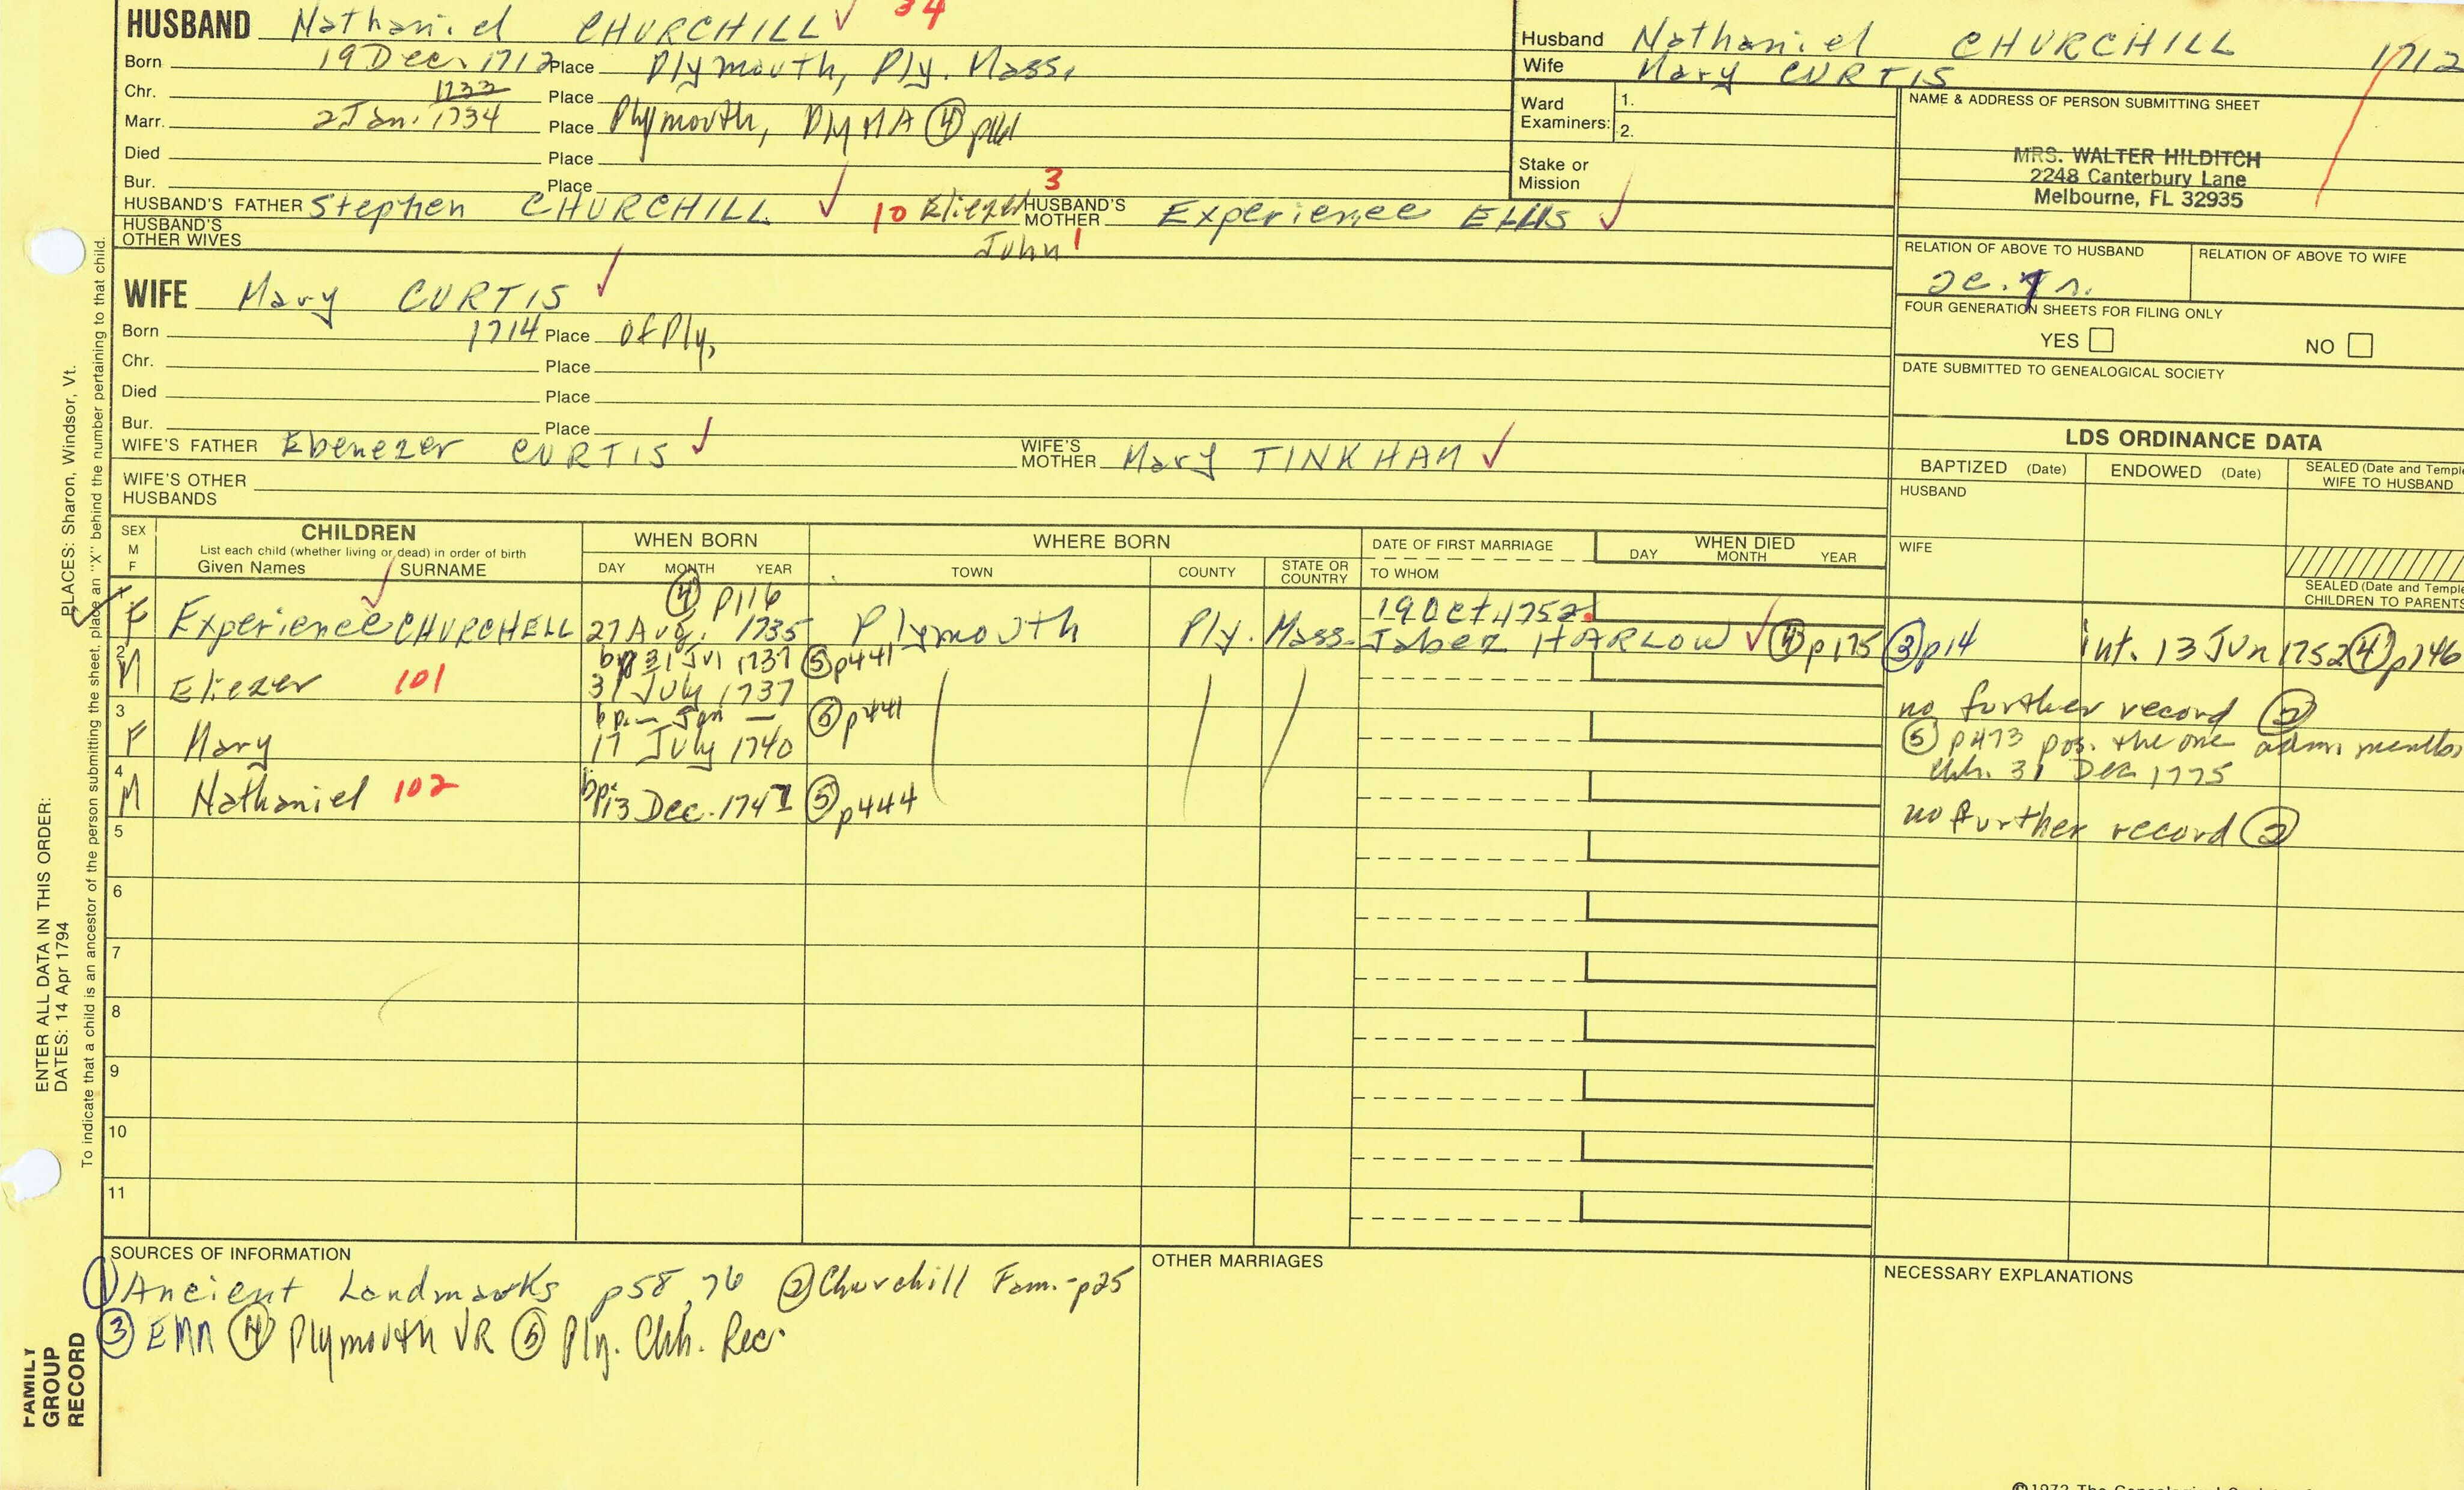 HUSBAND Nathaniel CHURCHILL 34
Born 19 Dec. 1712 Place Plymouth, Ply. Mass.
Chr. 1733 Place
Marr. 2 Jan. 1734 Place Plymouth, Ply MA ④ p161
Died Place
Bur. Place
HUSBAND'S FATHER Stephen CHURCHILL 10 Eliezer 3 HUSBAND'S MOTHER Experience ELLIS
HUSBAND'S OTHER WIVES John 1
WIFE Mary CURTIS
Born 1714 Place of Ply,
Chr. Place
Died Place
Bur. Place
WIFE'S FATHER Ebenezer CURTIS WIFE'S MOTHER Mary TINKHAM
WIFE'S OTHER HUSBANDS
Husband Nathaniel CHURCHILL 1712
Wife Mary CURTIS
Ward Examiners: 1. 2.
Stake or Mission
NAME & ADDRESS OF PERSON SUBMITTING SHEET
MRS. WALTER HILDITCH
2248 Canterbury Lane
Melbourne, FL 32935
RELATION OF ABOVE TO HUSBAND RELATION OF ABOVE TO WIFE
FOUR GENERATION SHEETS FOR FILING ONLY
YES NO
DATE SUBMITTED TO GENEALOGICAL SOCIETY
LDS ORDINANCE DATA
BAPTIZED (Date) ENDOWED (Date) SEALED (Date and Temple WIFE TO HUSBAND
HUSBAND
WIFE
SEALED (Date and Temple CHILDREN TO PARENTS
SEX M F
CHILDREN
List each child (whether living or dead) in order of birth
Given Names SURNAME
WHEN BORN
DAY MONTH YEAR
WHERE BORN
TOWN COUNTY STATE OR COUNTRY
DATE OF FIRST MARRIAGE
TO WHOM
WHEN DIED
DAY MONTH YEAR
④ p116 19 Oct 1752
1 F Experience CHURCHELL 27 Aug. 1735 Plymouth Ply. Mass. Jabez HARLOW ④ p175 ③ p14 int. 13 Jun 1752 ④ p146
2 M bp 31 Jul 1737 ⑤ p441
Eliezer 101 31 July 1737 no further record ②
3 bp. — Jan — ⑤ p441
F Mary 17 July 1740 ⑤ p473 pos. the one adm. member
Chh. 31 Dec 1775
4 M Nathaniel 102 bp. 13 Dec. 1741 ⑤ p444 no further record ②
5
6
7
8
9
10
11
SOURCES OF INFORMATION
① Ancient Landmarks p58, 76 ② Churchill Fam. - p25
③ EMM ④ Plymouth VR ⑤ Ply. Chh. Rec.
OTHER MARRIAGES
NECESSARY EXPLANATIONS
PLACES: Sharon, Windsor, Vt.
ENTER ALL DATA IN THIS ORDER:
DATES: 14 Apr 1794
To indicate that a child is an ancestor of the person submitting the sheet, place an "X" behind the number pertaining to that child.
FAMILY
GROUP
RECORD
©1972 The Genealogical